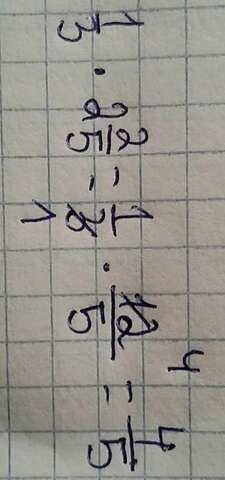 1/3 · 2 2/5 = 1/3 · 12/5 = 4/5
1 4